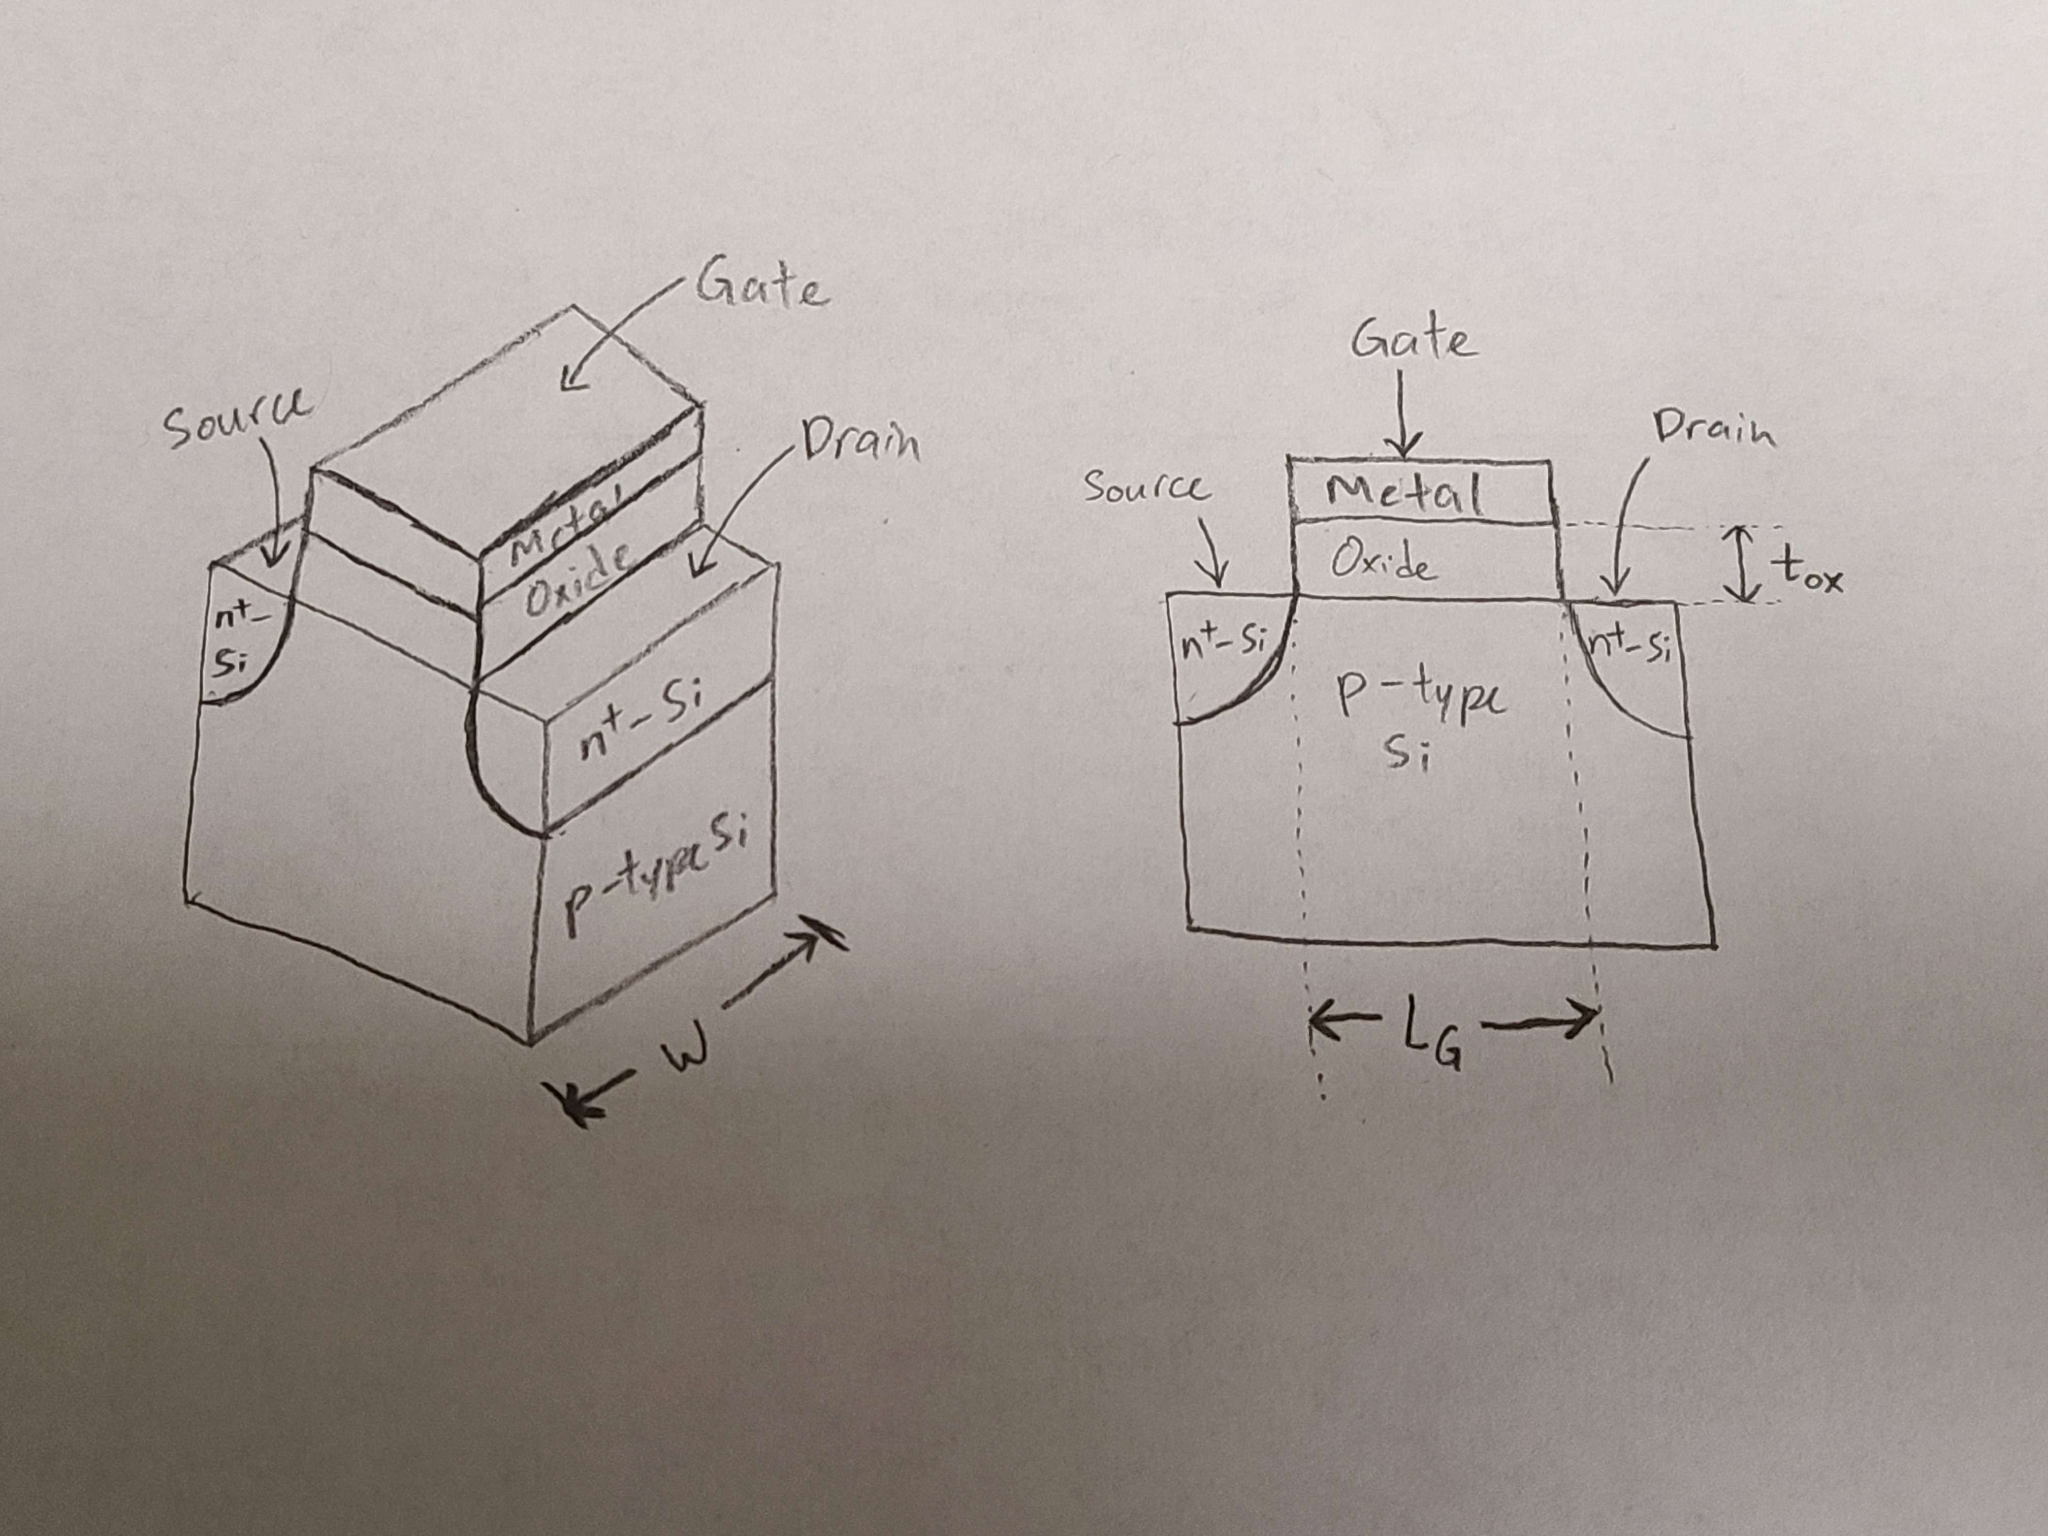 Gate
Source
Drain
Metal
Oxide
n⁺-
Si
n⁺-Si
p-type Si
W
Gate
Drain
Source
Metal
Oxide
tox
n⁺-Si
n⁺-Si
p-type
Si
LG